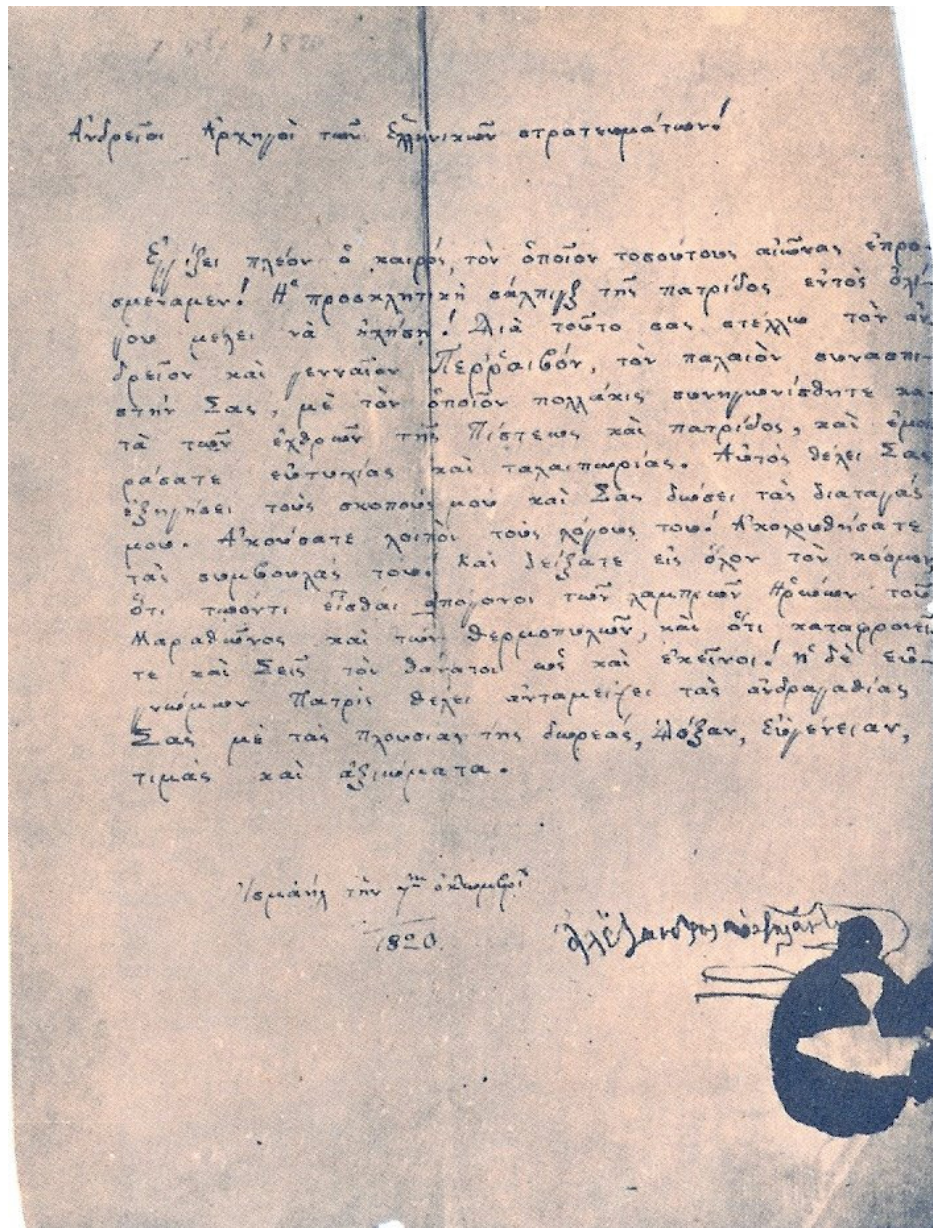 Ἀνδρεῖοι Ἀρχηγοὶ τῶν Ἑλληνικῶν στρατευμάτων!
Ἐγγίζει πλέον ὁ καιρός, τὸν ὁποῖον τοσούτους αἰῶνας ἐπρο-
σμέναμεν! Ἡ προσκλητικὴ σάλπιγξ τῆς πατρίδος ἐντὸς ὀλί-
γου μέλει νὰ ἠχήσῃ! Διὰ τοῦτο σας στέλλω τὸν ἀν-
δρεῖον καὶ γενναῖον Περῤαιβόν, τὸν παλαιὸν συνασπι-
στήν Σας, μὲ τὸν ὁποῖον πολλάκις συνηγωνίσθητε κα-
τὰ τῶν ἐχθρῶν τῆς Πίστεως καὶ πατρίδος, καὶ ἐμοι
ράσατε εὐτυχίας καὶ ταλαιπωρίας. Αὐτὸς θέλει Σας
ἐξηγήσει τοὺς σκοπούς μου καὶ Σας δώσει τὰς διαταγάς
μου. Ἀκούσατε λοιπὸν τοὺς λόγους του! Ἀκολουθήσατε
τὰς συμβουλάς του! Καὶ δείξατε εἰς ὅλον τὸν κόσμον
ὅτι τωόντι εἶσθαι ἀπόγονοι τῶν λαμπρῶν Ἡρώων τοῦ
Μαραθῶνος καὶ τῶν Θερμοπυλῶν, καὶ ὅτι καταφρονεῖ-
τε καὶ Σεῖς τὸν θάνατον ὡς καὶ ἐκεῖνοι! ἡ δὲ εὐ-
γνώμων Πατρὶς θέλει ἀνταμείψει τὰς ἀνδραγαθίας
Σας μὲ τὰς πλουσίας της δωρεάς, δόξαν, εὐγένειαν,
τιμὰς καὶ ἀξιώματα.
Ἰσμαήλ τὴν 7ην ὀκτωμβρί
1820.
ἀλέξανδρος ὑψηλάντης